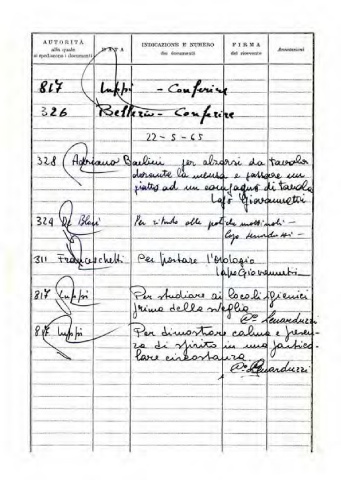 AUTORITÀ alla quale si spediscono i documenti DATA INDICAZIONE E NUMERO dei documenti FIRMA del ricevente Annotazioni
817 Luppi - Conferire
326 Bellezia - Conferire
22-5-65
328 Adriano Barlini per alzarsi da tavola
durante la mensa e passare un
piatto ad un compagno di tavola
Capo Giovannetti
324 De Blasi Per ritardo alle pratiche mattinali -
311 Franceschetti Per portare l'orologio
Capo Giovannetti
817 Luppi Per studiare ai locali igienici
prima della sveglia
Lenarduzzi
817 Luppi Per dimostrare calma e presen-
za di spirito in una partico-
lare circostanza
Lenarduzzi